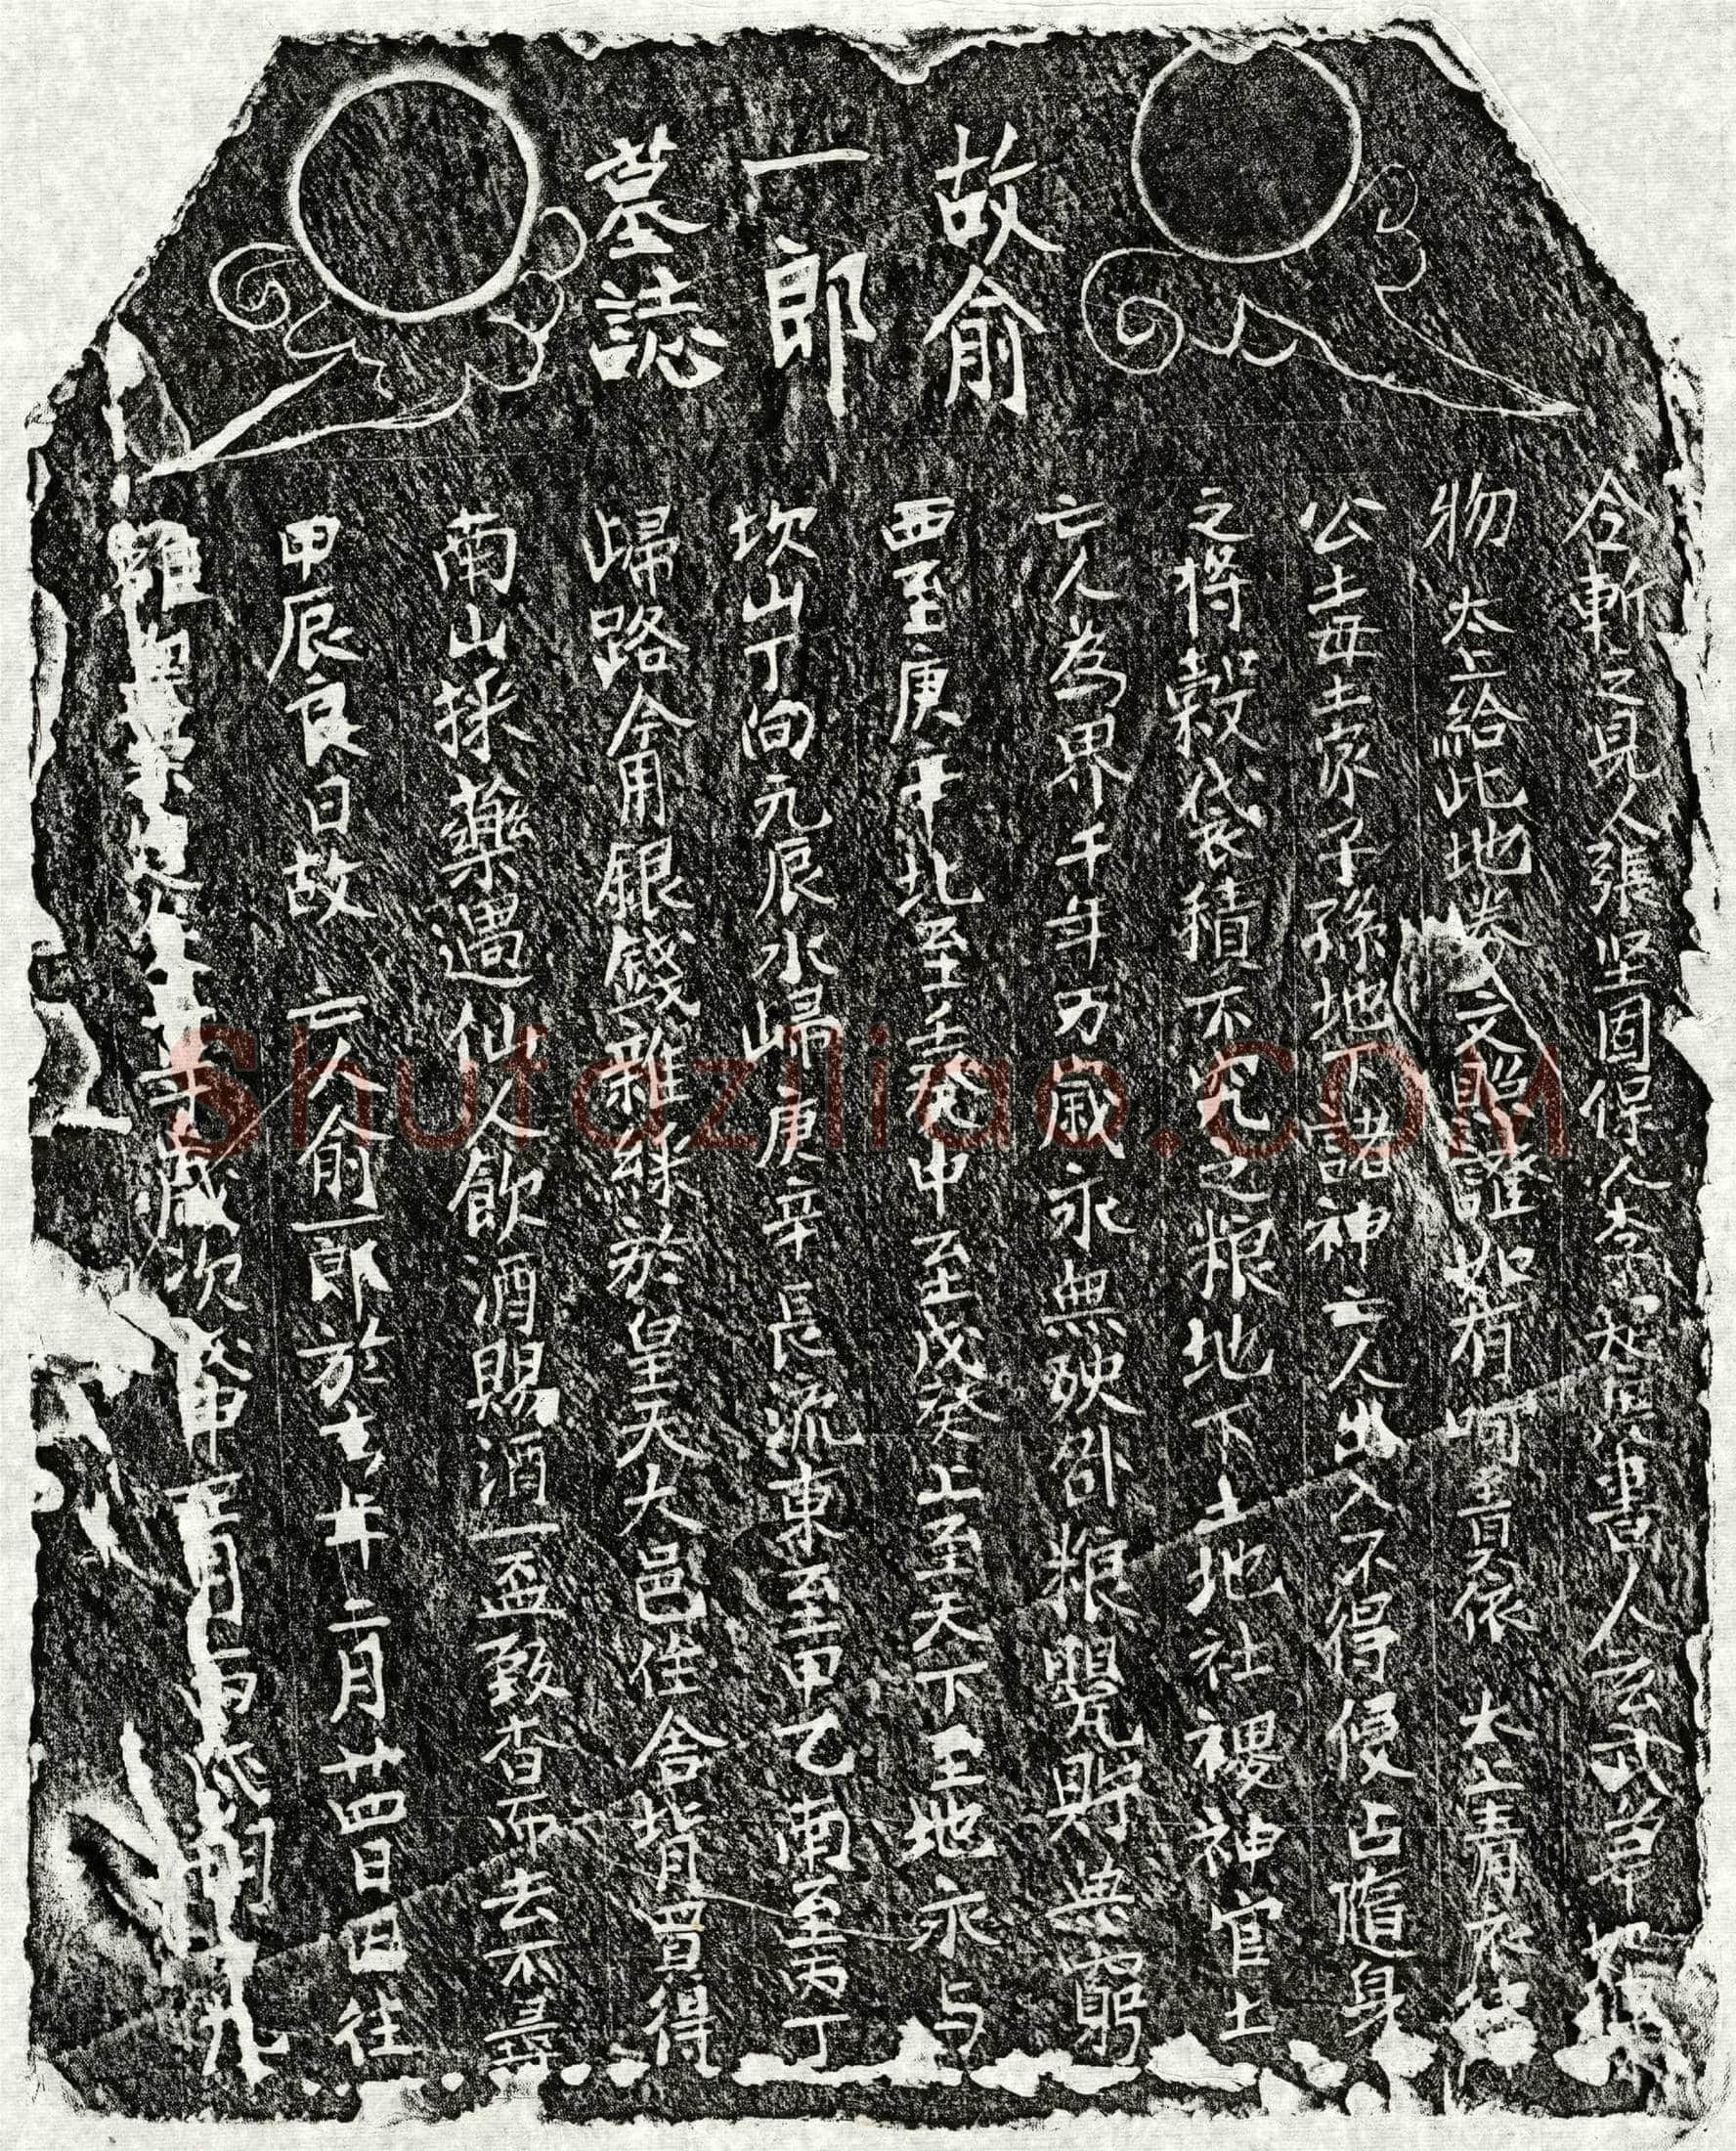 故俞
一郎
墓誌
維 歲次 申 月丙 九
甲辰良日故亡人俞一郎於去年二月廿四日因往
南山採藥遇仙人飲酒賜酒一盃致杳而去不尋
歸路今用銀錢雜綵於皇天大邑住舍背買得
坎山丁向元辰水歸庚辛長流東至甲乙南至丙丁
西至庚辛北至壬癸中至戊癸上至天下至地永与
亡人為界千年万歲永無殃咎粮甖貯無窮
之將穀袋積不死之粮地下土地社稷神官土
公土母土家子孫地下諸神亡人出入不得便占隨身
物太上給此地券文 證如有呵責依太上青衣律
令斬之見人張坚固保人李 書人
Shufaziliao.COM